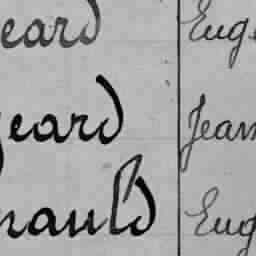 eard Eug
eard Jean
nauld Eug